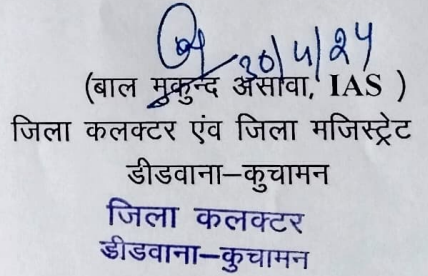 30/4/24
(बाल मुकुन्द असावा, IAS )
जिला कलक्टर एंव जिला मजिस्ट्रेट
डीडवाना–कुचामन
जिला कलक्टर
डीडवाना–कुचामन